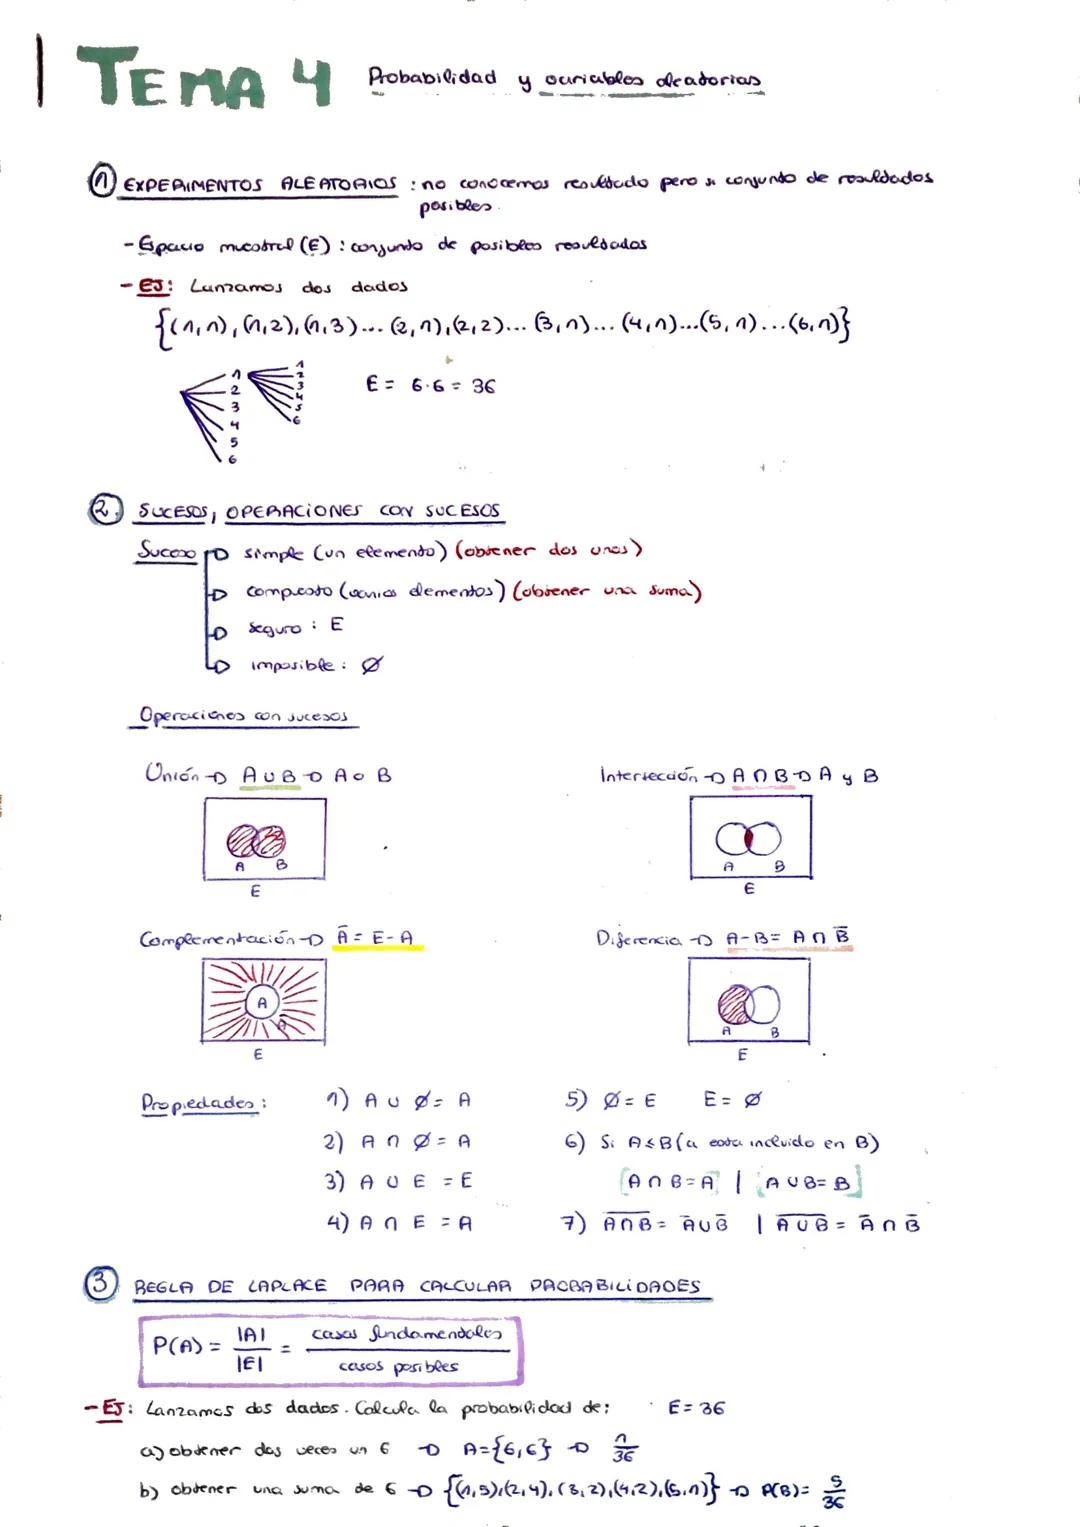 TEMA 4 Probabilidad y variables aleatorias
1 EXPERIMENTOS ALEATORIOS : no conocemos resultado pero si conjunto de resultados
posibles.
- Espacio muestral (E) : conjunto de posibles resultados
- EJ: Lanzamos dos dados
{(1,1),(1,2),(1,3)... (2,1),(2,2)... (3,1)... (4,1)...(5,1)...(6,1)}
1 2 3 4 5 6
1 2 3 4 5 6
E = 6·6 = 36
2. SUCESOS, OPERACIONES CON SUCESOS
Suceso simple (un elemento) (obtener dos unos)
compuesto (varios elementos) (obtener una suma)
seguro : E
imposible : Ø
Operaciones con sucesos
Unión → A ∪ B → A o B
A B
E
Intersección → A ∩ B → A y B
A B
E
Complementación → Ā = E - A
A
Ā
E
Diferencia → A-B = A ∩ B̄
A B
E
Propiedades :
1) A ∪ Ø = A
2) A ∩ Ø = A
3) A ∪ E = E
4) A ∩ E = A
5) Ø = E E = Ø
6) Si A ≤ B (a esta incluido en B)
[A ∩ B = A] | [A ∪ B = B]
7) A̅∩̅B̅ = Ā ∪ B̄ | A̅∪̅B̅ = Ā ∩ B̄
3 REGLA DE LAPLACE PARA CALCULAR PROBABILIDADES
P(A) = |A| / |E| = casos fundamentales / casos posibles
- EJ: Lanzamos dos dados. Calcula la probabilidad de: E = 36
a) obtener dos veces un 6 → A={6,6} → 1/36
b) obtener una suma de 6 → {(1,5),(2,4),(3,2),(4,2),(5,1)} → P(B)= 5/36